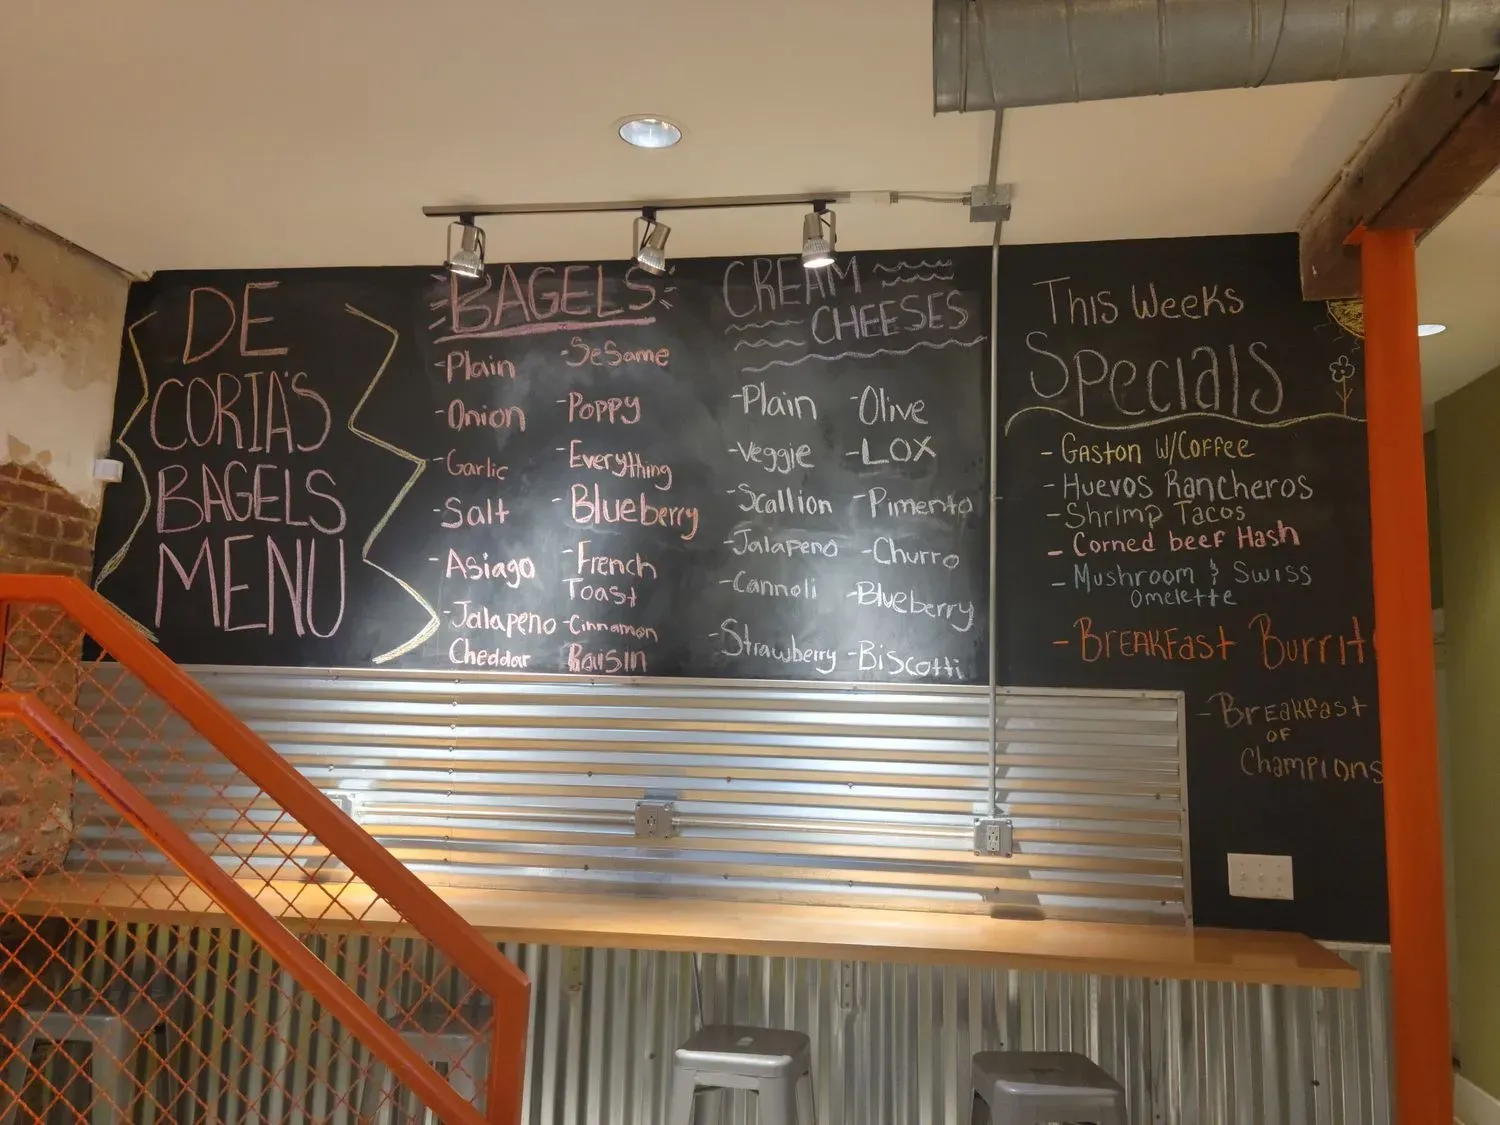 DE
CORIA'S
BAGELS
MENU
BAGELS
-Plain
-Onion
-Garlic
-Salt
-Asiago
-Jalapeno
Cheddar
-Sesame
-Poppy
-Everything
-Blueberry
-French
Toast
-Cinnamon
Raisin
CREAM
CHEESES
-Plain
-Veggie
-Scallion
-Jalapeno
-Cannoli
-Strawberry
-Olive
-LOX
-Pimento
-Churro
-Blueberry
-Biscotti
This Weeks
Specials
- Gaston W/Coffee
- Huevos Rancheros
- Shrimp Tacos
- Corned beef Hash
- Mushroom & Swiss
Omelette
- Breakfast Burrit
- Breakfast
OF
Champions